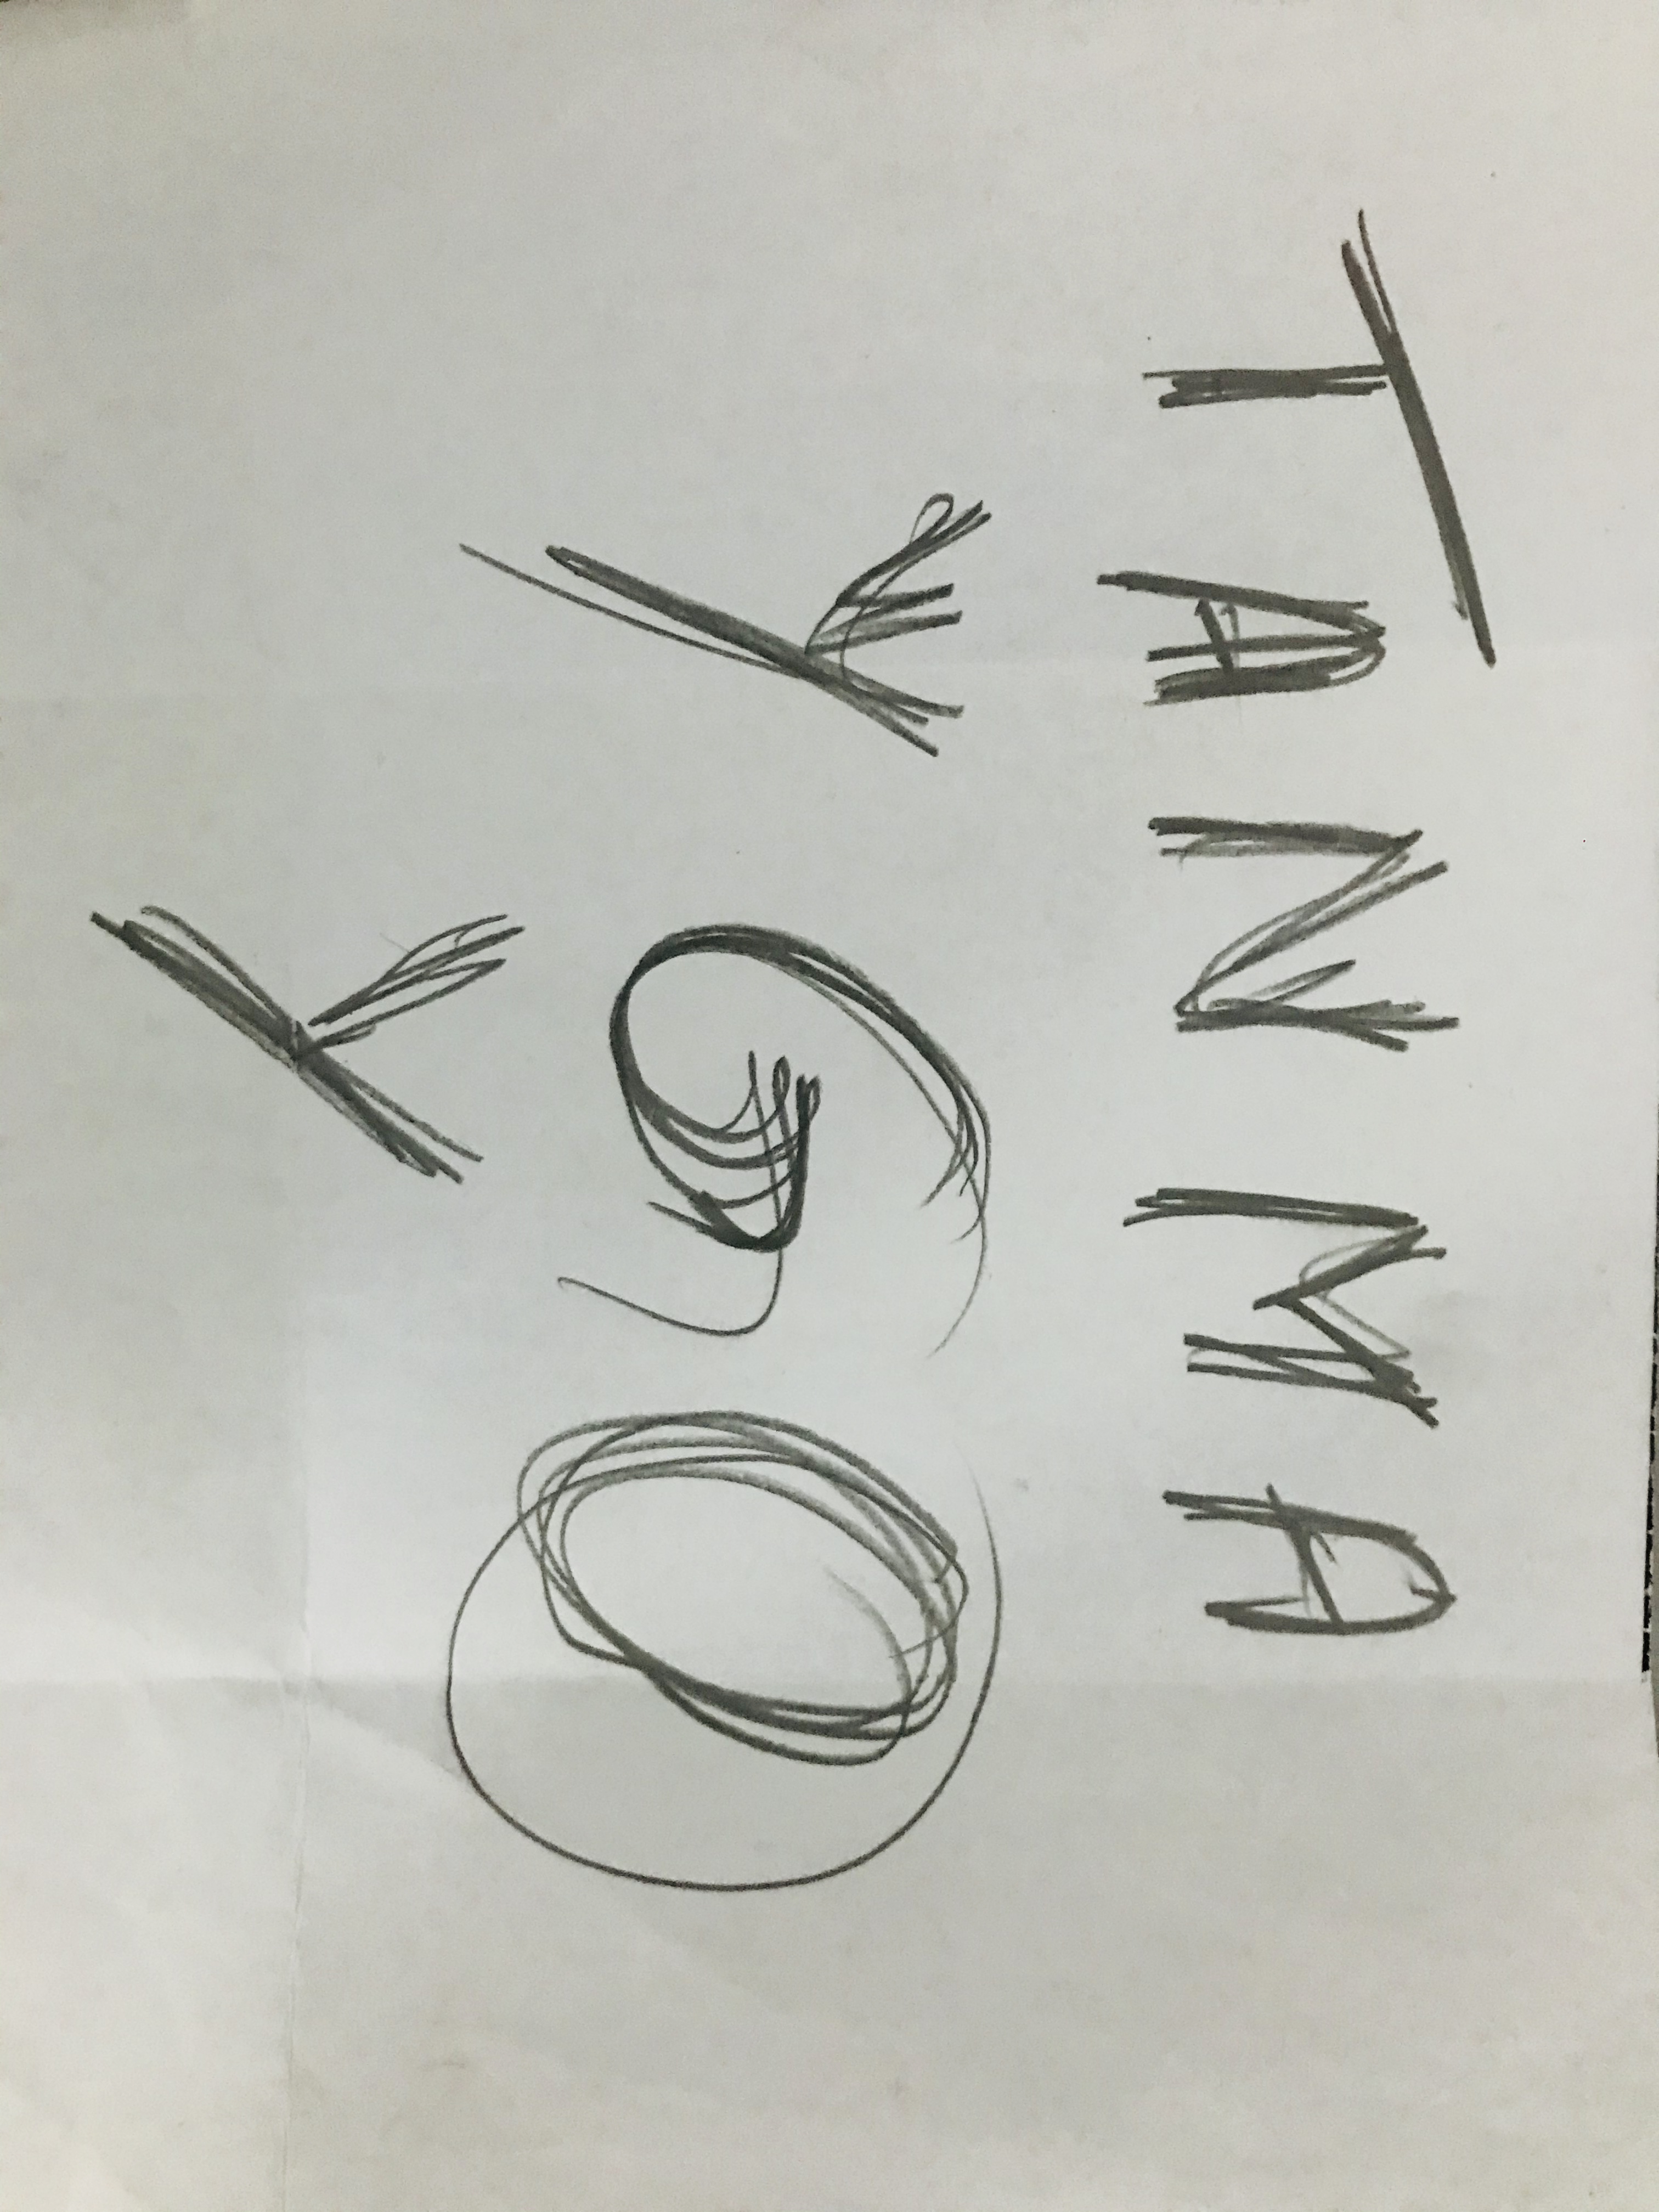 TANMA
YGO
Y